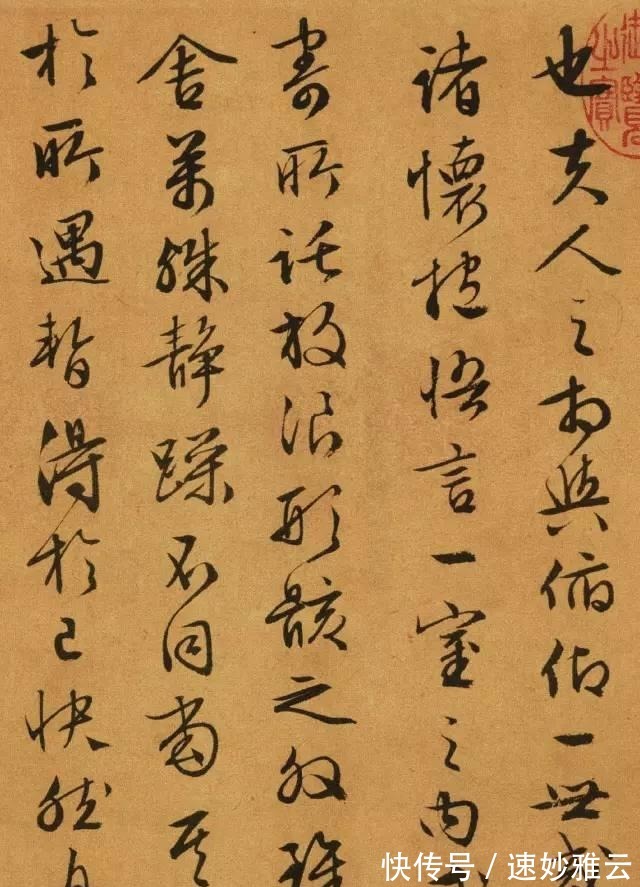 也夫人之相與俯仰一世或
諸懷抱悟言一室之內
寄所託放浪形骸之外雖
舍萬殊靜躁不同當其
於所遇暫得於己快然自
御覽之寶
快传号 / 速妙雅云